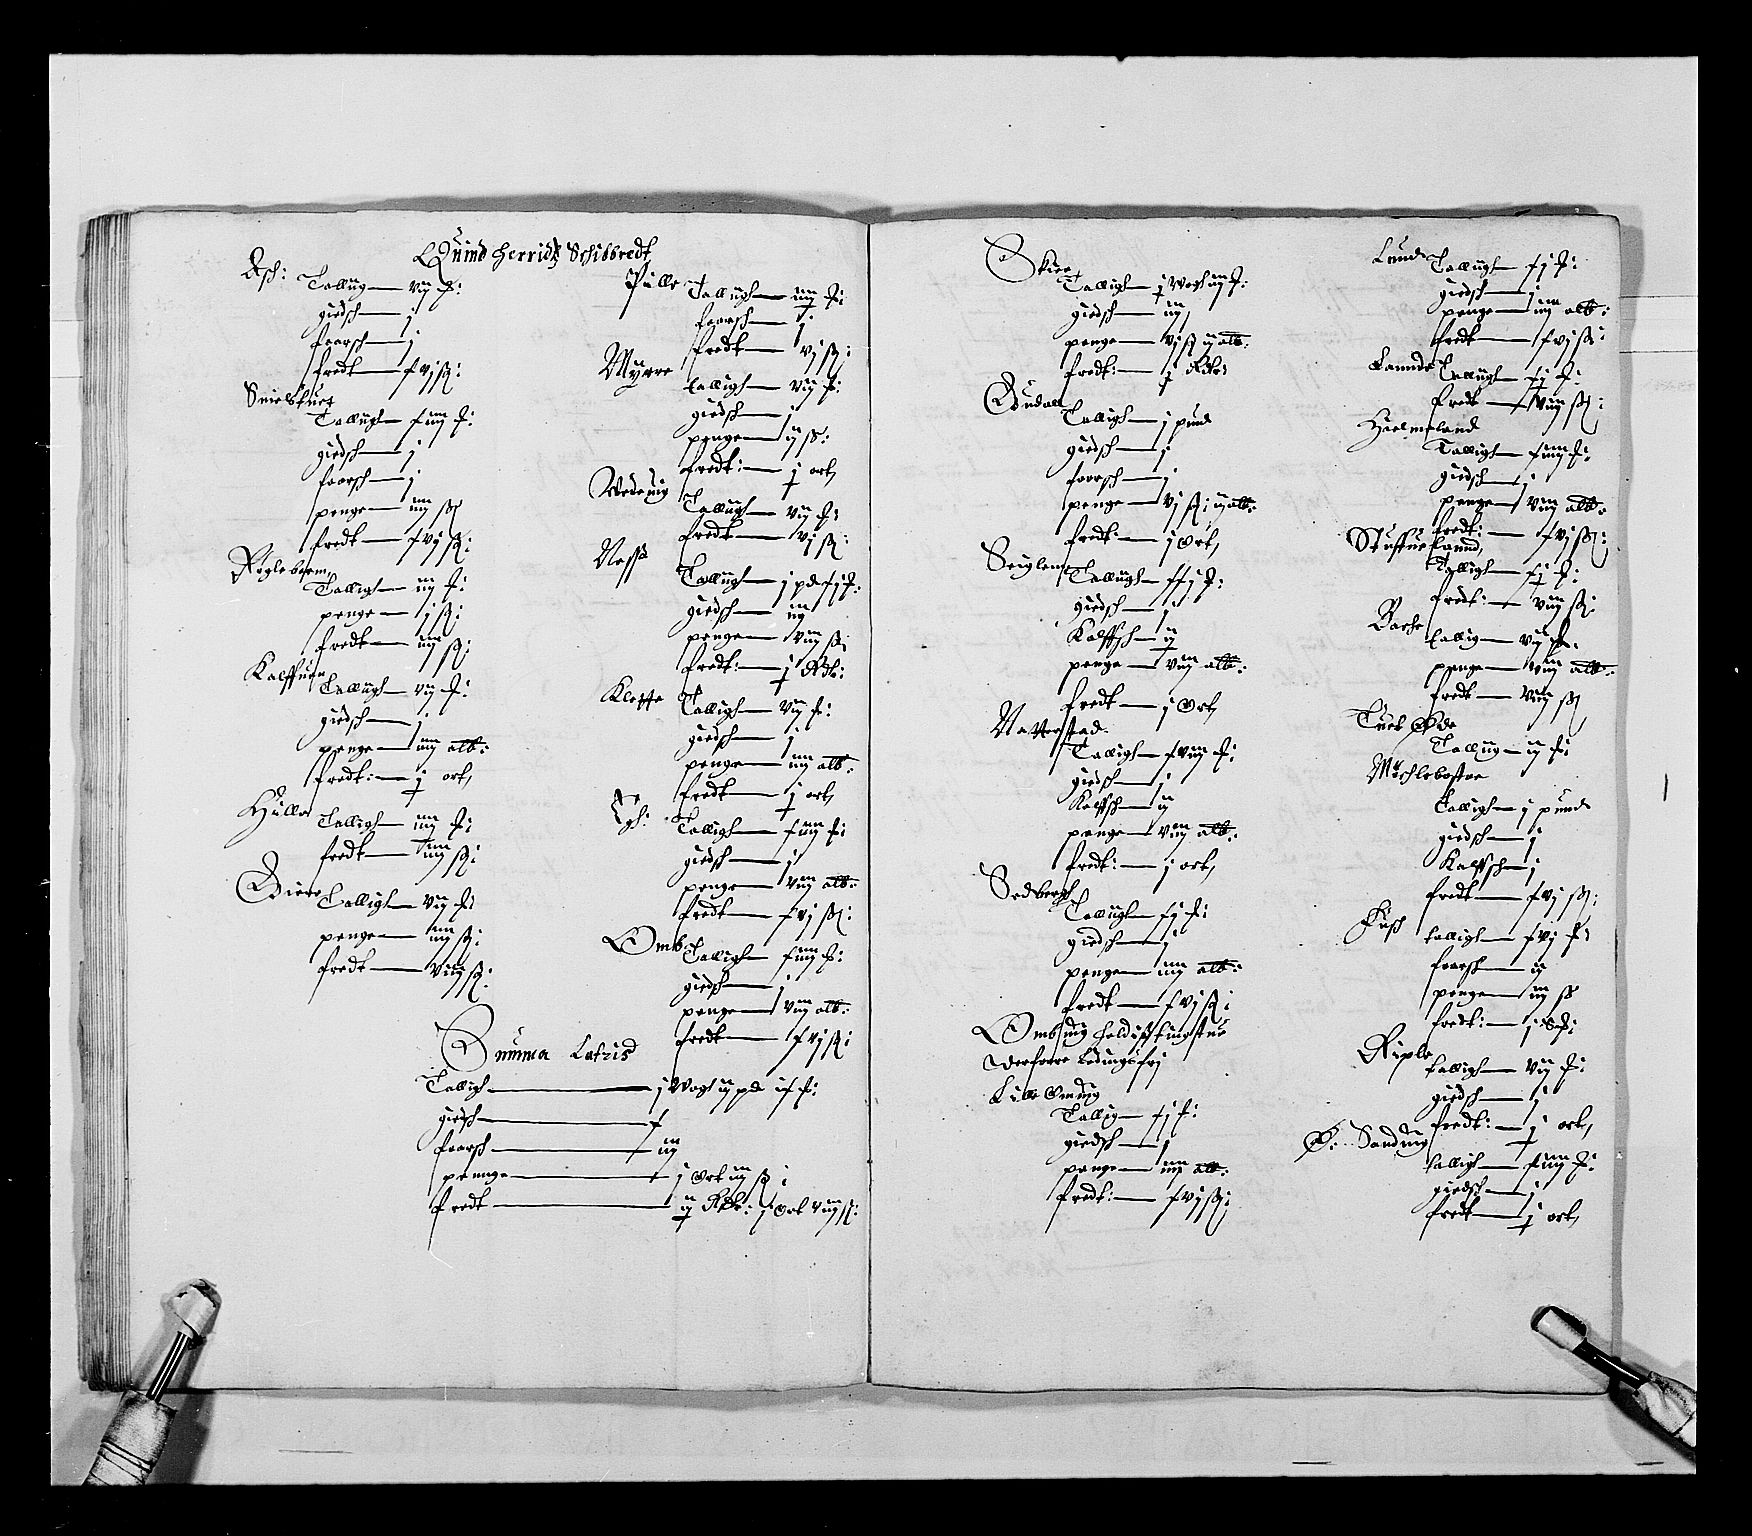 Quind herridtz Schibbredt
Ash:
Tallug — vij f:
giedsh — j
faarsh — j
fredt — f vj ß:
Snielstuet
Tallugh — f iiij f:
giedsh — j
faarsh — j
penge — iiij ß
fredt — f vj ß:
Rögleberm
Talligh — iiij f:
penge — j ß:
fredt — iiij ß:
Kalffuen
Tallugh — vij f:
giedsh — j
penge — iiij alb:
fredt: — j ort,
Hüller
Talligh — iiij f:
fredt — iiij ß:
Giere
Talligh — vij f:
penge — iiij ß:
fredt — viij ß:
Pülle
Tallugh — iiij f:
faarsh — j
fredt — vj ß:
Myrre
talligh — vij f:
giedsh — j
penge — ij ß:
fredt: — j ort,
Wedeuig
Tallugh — vij f:
fredt — vj ß:
Nessa
Tallugh — j pd f j f:
giedsh — iiij
penge — viij ß:
fredt: — j Rdr:
Kleppe
Talligh — vij f:
giedsh — j
penge — iiij alb:
fredt — j ort,
Egh:
Talligh — f iiij f:
giedsh — j
penge — viij alb:
fredt — f vj ß:
Ombo
Talligh — f iiij f:
giedsh — j
penge — viij alb:
fredt — f vj ß:
Summa Lateris
Talligh — j Wogh ij pd
giedsh — f
faarsh — iiij
pennge — j ort iij ß:
fredt — ij Rdr: j ort viij ß:
Skier
Talligh — j Wogh iiij f:
giedsh — iiij
penge — vj ß ij alb:
fredt: — j Rdr
Gudall
Talligh — j pund
giedsh — j
faarsh — j
penge — vj ß ij alb:
fredt: — j ort,
Seiglem
Tallugh — f f j f:
giedsh — j
Kalffsh — ij
penge — viij alb:
fredt — j ort,
Natterstad
Talligh — f viij f:
giedsh — j
Kalfsh — ij
penge — viij alb:
fredt: — j ort,
Sedbergh
Tallugh — f j f:
giedsh — j
penge — iiij alb:
fredt — f vj ß:
Ombsnig holdis tingstue
Derforre Ledingsfrj
Lille Omdnig
Tallig — f j f:
giedsh — j
penge — iiij alb:
fredt: — f vj ß:
Lunde
Tallugh — f j f:
giedsh — j
penge — iiij alb:
fredt — f vj ß:
Lannde
Tallugh — f j f:
fredt — viij ß:
Hielmeland
Talligh — f iiij f:
giedsh — j
penge — viij alb:
fredt: — f vj ß:
Stuffuelannd,
Talligh — f j f:
fredt: — viij ß:
Barhe
tallig — vij f:
penge — viij alb:
fredt — viij ß
Tuet Øde
Tallug — ij f:
Mychlebostae
Talligh — j pund
giedsh — j
Kalffsh — j
fredt — f vj ß:
Füsh
talligh — f vj f:
faarsh — ij
penge — iij ß
fredt: — j Rdr:
Riple
talligh — vij f:
giedsh — j
fredt: — j ort,
O: Sandnig
talligh — f iiij f:
giedsh — j
fredt — j ort,